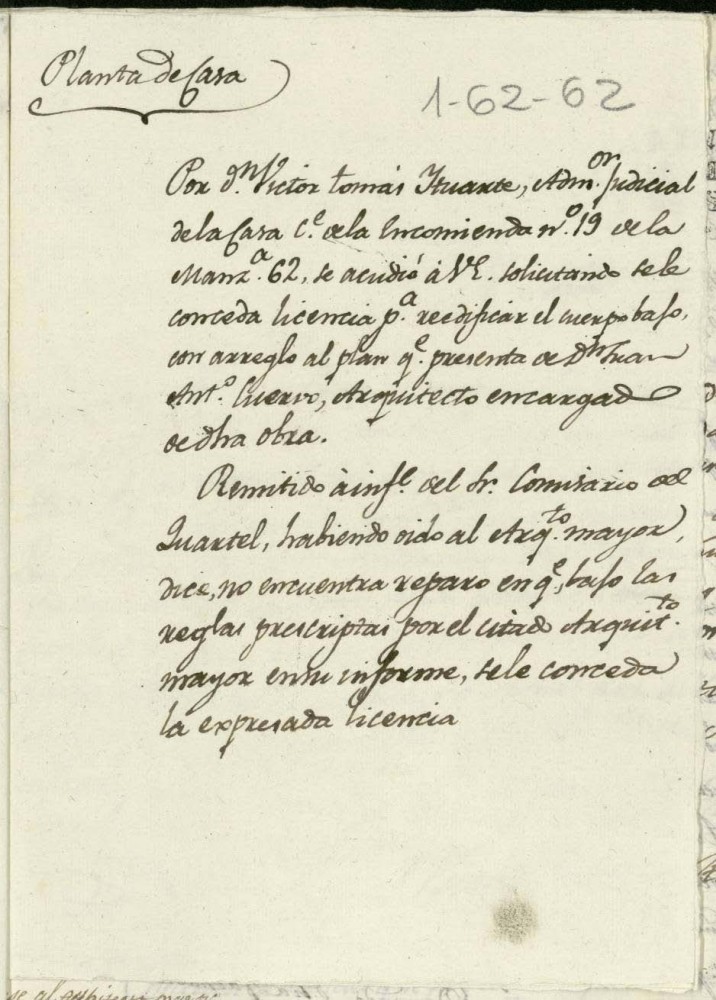 Planta de Casa
1-62-62
Por dn. Victor tomás Ytuarte, Admor. Judicial
de la Casa Ce. de la Encomienda no. 19 de la
Manza. 62, se acudió á V.E. solicitando se le
conceda licencia pa. reedificar el cuerpo bajo,
con arreglo al plan qe. presenta de Dn Juan
Anto. Cuervo, Arquitecto encargado
de dha obra.
Remitido à infe. del Sr. Comisario del
Quartel, habiendo oido al Arqto. mayor,
dice, no encuentra reparo en qe, bajo las
reglas prescriptas por el citado Arquitto.
mayor en su informe, se le conceda
la expresada licencia